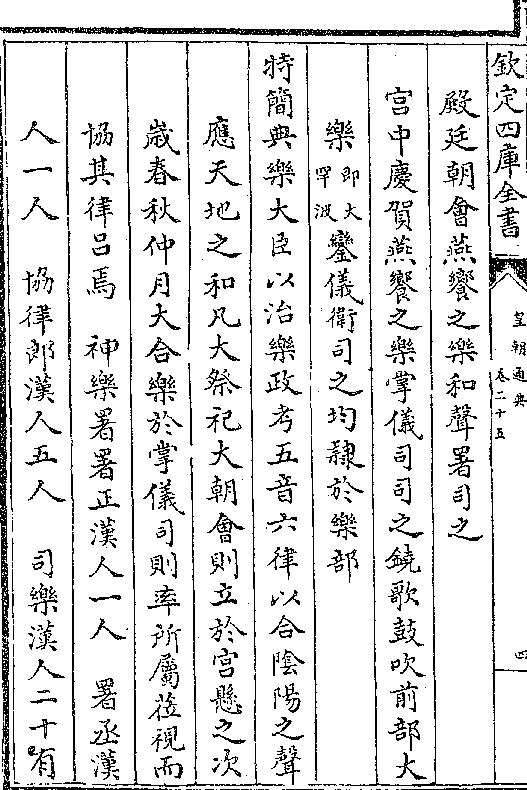 欽定四庫全書
皇朝通典
卷二十五
四
殿廷朝會燕饗之樂和聲署司之
宮中慶賀燕饗之樂掌儀司司之鐃歌鼓吹前部大
樂即大罕波鑾儀衛司之均隸於樂部
特簡典樂大臣以治樂政考五音六律以合陰陽之聲
應天地之和凡大祭祀大朝會則立於宮懸之次
歲春秋仲月大合樂於掌儀司則率所屬蒞視而
協其律呂焉　神樂署署正漢人一人　署丞漢
人一人　協律郎漢人五人　司樂漢人二十有